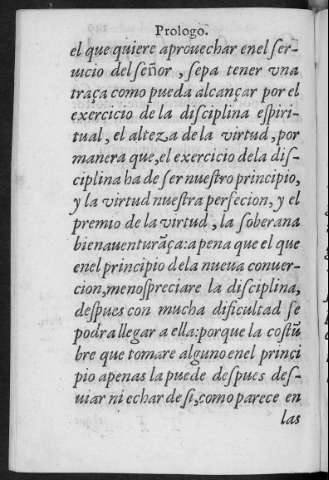 Prologo.
el que quiere aprouechar enel ser-
uicio del señor, sepa tener vna
traça como pueda alcançar por el
exercicio de la disciplina espiri-
tual, el alteza de la virtud, por
manera que, el exercicio dela dis-
ciplina ha de ser nuestro principio,
y la virtud nuestra perfecion, y el
premio de la virtud, la soberana
bienauenturãça: apena que el que
enel principio dela nueua conuer-
cion, menospreciare la disciplina,
despues con mucha dificultad se
podra llegar a ella: porque la costũ
bre que tomare alguno enel princi
pio apenas la puede despues des-
uiar ni echar de si, como parece en
las